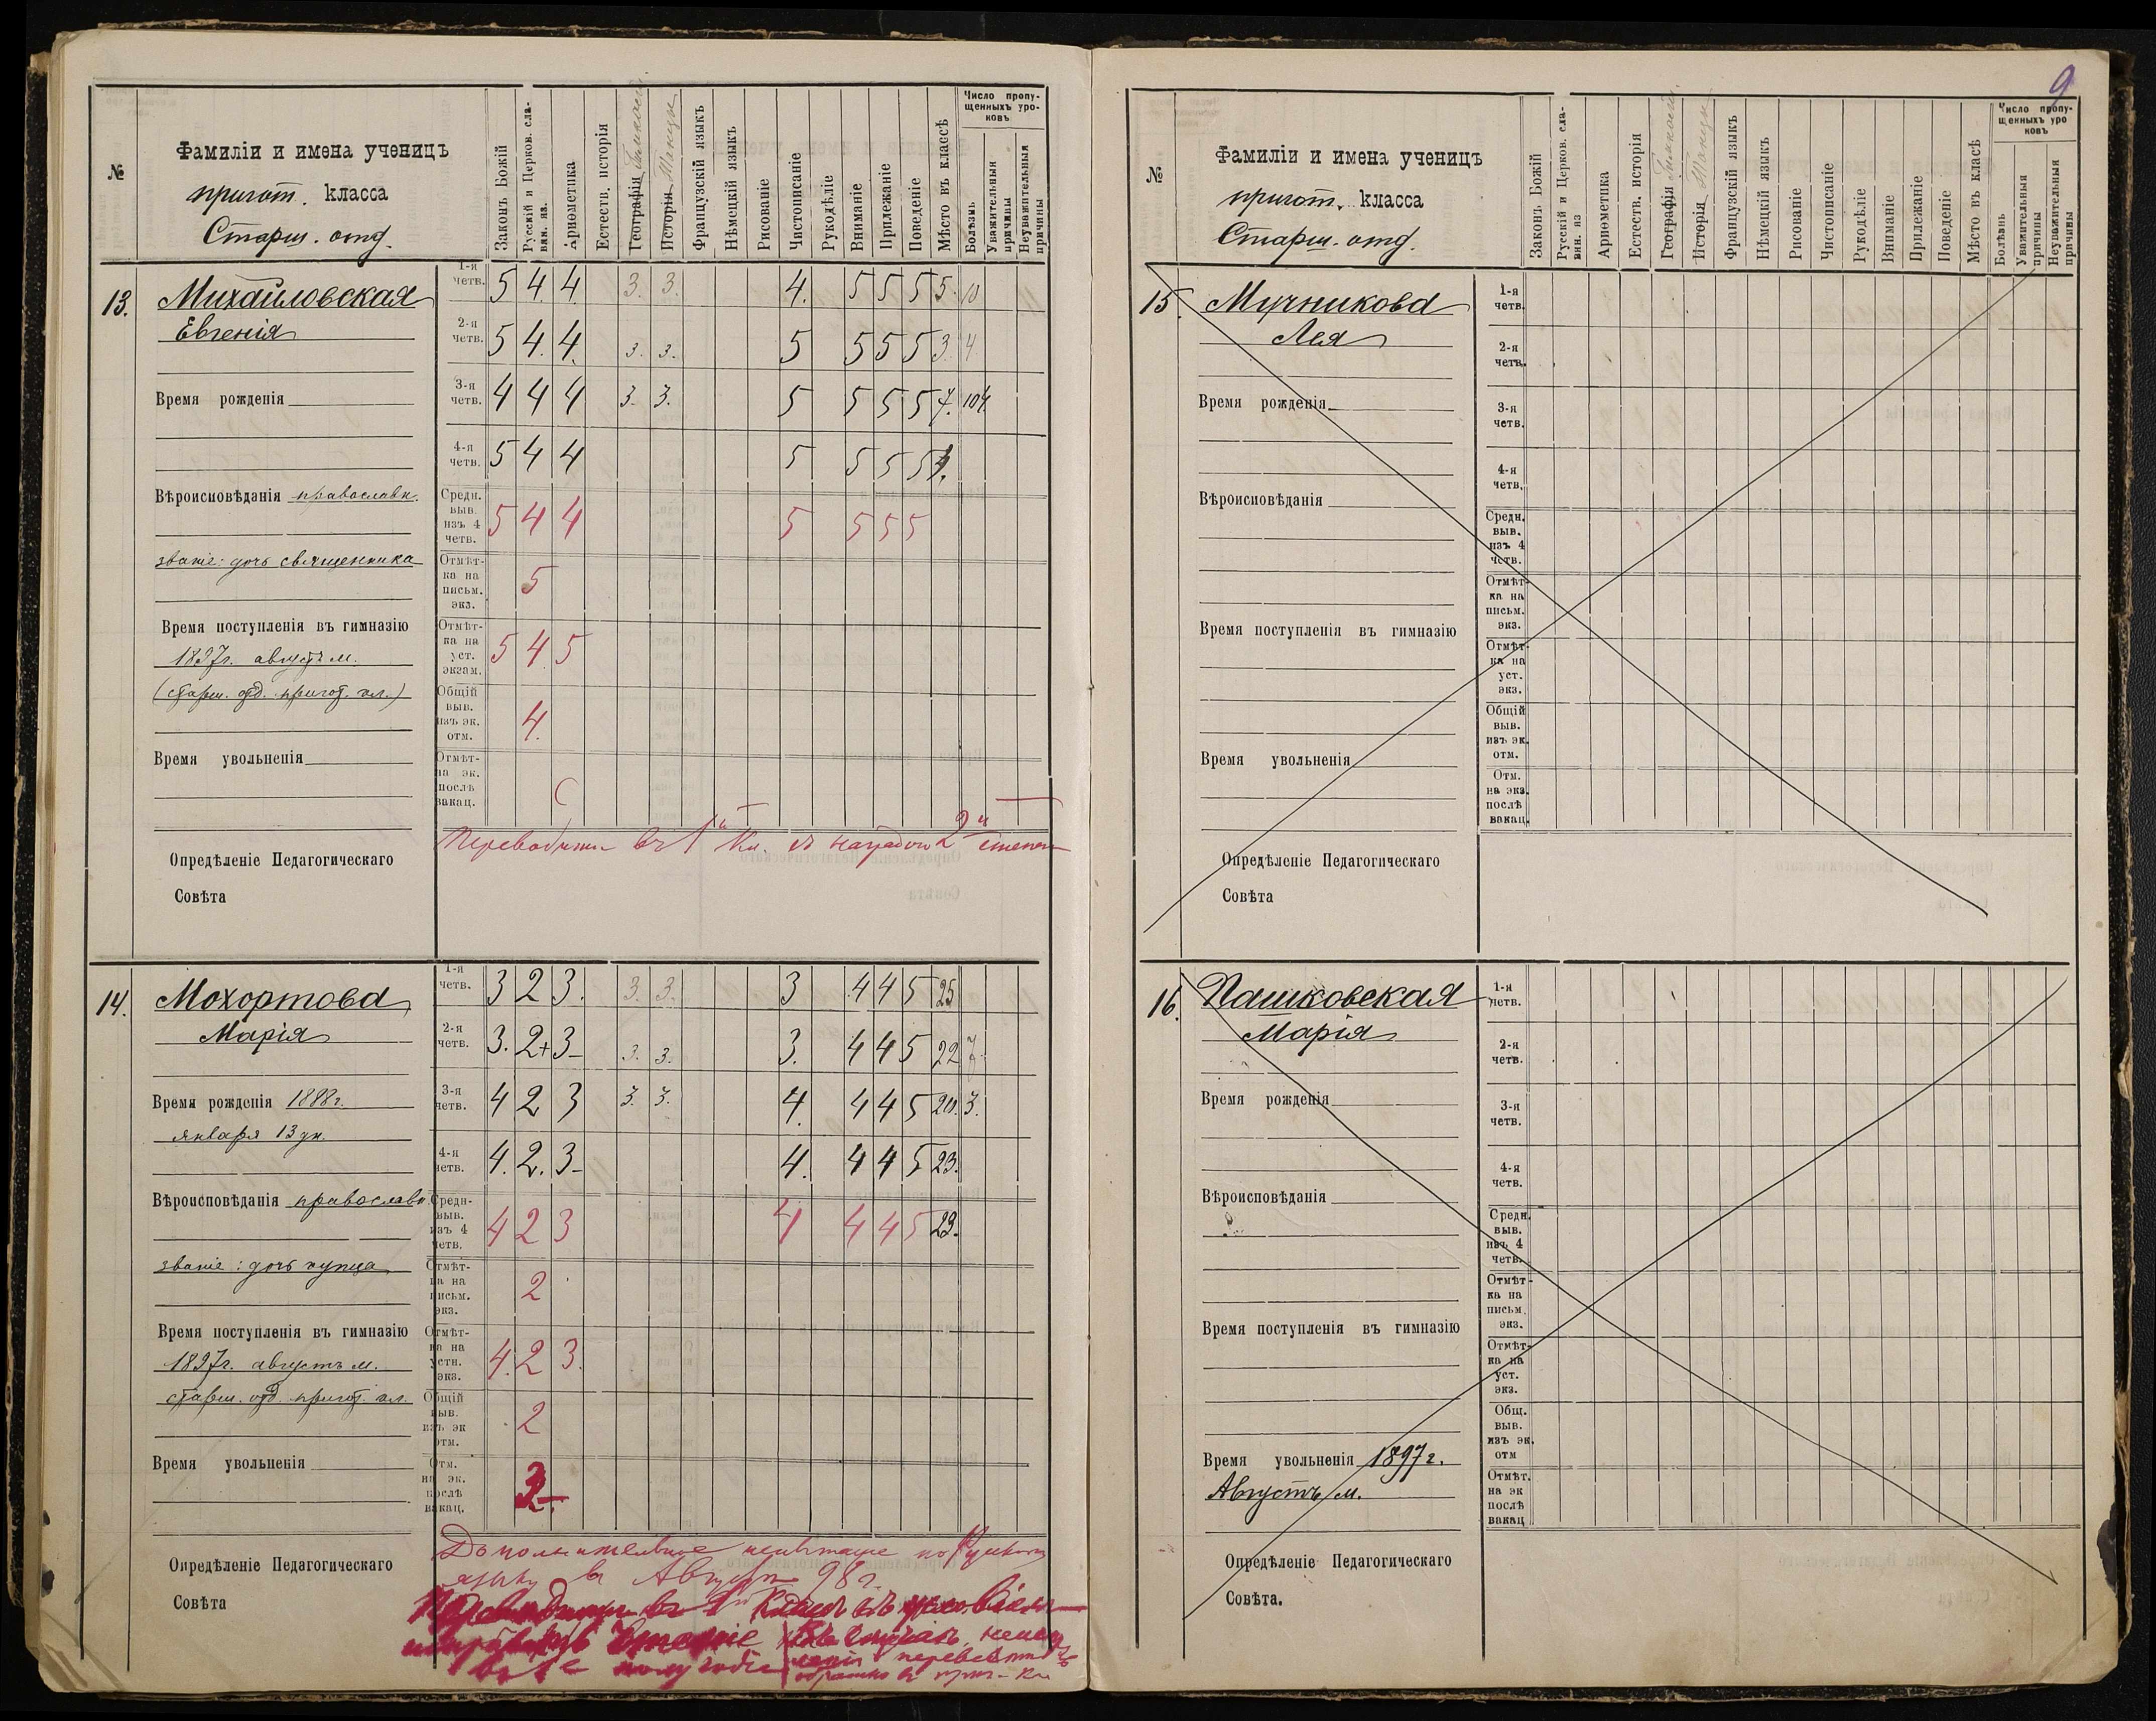 №
Фамиліи и имена ученицъ
пригот. класса
Старш. отд.
Законъ Божій
Русскій и Церков. сла-
вян. яз.
Ариѳметика
Естеств. исторія
Географія Гимнаст.
Исторія Танцы
Французскій языкъ
Нѣмецкій языкъ
Рисованіе
Чистописаніе
Рукодѣліе
Вниманіе
Прилежаніе
Поведеніе
Мѣсто въ классѣ
Число пропу-
щенныхъ уро-
ковъ
Болѣзнь
Уважительныя
причины
Неуважительныя
причины
13.
Михайловская
Евгенія
Время рожденія
Вѣроисповѣданія православн.
званіе: дочь священника
Время поступленія въ гимназію
1897г. августъ м.
(старш. отд. пригот. кл.)
Время увольненія
1-я четв. 5 4 4 3. 3. 4. 5 5 5 5. 10
2-я четв. 5 4. 4. 3. 3. 5 5 5 5 3. 4.
3-я четв. 4 4 4 3. 3. 5 5 5 5 7. 104.
4-я четв. 5 4 4 5 5 5 5
Средн. выв. изъ 4 четв. 5 4 4 5 5 5 5
Отмѣт-ка на письм. экз. 5
Отмѣт-ка на уст. экзам. 5 4 5
Общій выв. изъ эк. отм. 4.
Отмѣт-на эк. послѣ вакац.
Опредѣленіе Педагогическаго
Совѣта
Переводится въ 1й Кл. съ наградою 2й степени
14.
Мохортова
Марія
Время рожденія 1888г.
января 13 дн.
Вѣроисповѣданія православн.
званіе: дочь купца
Время поступленія въ гимназію
1897г. августъ м.
старш. отд. пригот. кл.
Время увольненія
1-я четв. 3 2 3. 3. 3. 3 4 4 5 25
2-я четв. 3. 2+ 3- 3. 3. 3. 4 4 5 22 7.
3-я четв. 4 2 3 3. 3. 4. 4 4 5 20. 3.
4-я четв. 4. 2. 3- 4. 4 4 5 23.
Средн-выв. изъ 4 четв. 4 2 3 4 4 4 5 23.
Отмѣт-ка на письм. экз. 2
Отмѣт-ка на устн. экз. 4. 2 3.
Общій выв. изъ эк отм. 2
Отм. на эк. послѣ вакац. 3-.
Опредѣленіе Педагогическаго
Совѣта
Дополнительное испытаніе по Русскому
языку въ Августѣ 98 г.
въ 1й Классъ съ условіемъ
въ 1е полугодіе
въ случаѣ
перевести
обратно въ приг. кл
9
№
Фамиліи и имена ученицъ
пригот. класса
Старш. отд.
Законъ Божій
Русскій и Церков. сла-
вян. яз
Ариѳметика
Естеств. исторія
Географія Гимнаст.
Исторія Танцы
Французскій языкъ
Нѣмецкій языкъ
Рисованіе
Чистописаніе
Рукодѣліе
Вниманіе
Прилежаніе
Поведеніе
Мѣсто въ класѣ
Число пропу-
щенныхъ уро
ковъ
Болѣзнь
Уважительныя
причины
Неуважительныя
причины
15.
Мучникова
Лея
Время рожденія
Вѣроисповѣданія
Время поступленія въ гимназію
Время увольненія
1-я четв.
2-я четв.
3-я четв.
4-я четв.
Средн. выв. изъ 4 четв.
Отмѣт-ка на письм. экз.
Отмѣт-ка на уст. экз.
Общій выв. изъ эк. отм.
Отм. на экз. послѣ вакац.
Опредѣленіе Педагогическаго
Совѣта
16.
Пашковская
Марія
Время рожденія
Вѣроисповѣданія
Время поступленія въ гимназію
Время увольненія 1897 г.
Августъ м.
1-я четв.
2-я четв.
3-я четв.
4-я четв.
Средн. выв. изъ 4 четв.
Отмѣт-ка на письм. экз.
Отмѣт-ка на уст. экз.
Общ. выв. изъ эк. отм
Отмѣт. на эк послѣ вакац
Опредѣленіе Педагогическаго
Совѣта.